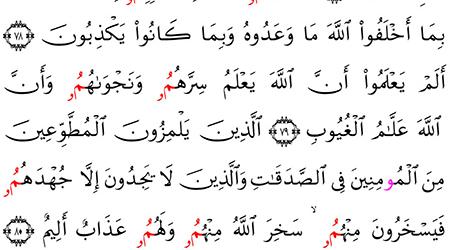 بِمَا أَخْلَفُوا۟ ٱللَّهَ مَا وَعَدُوهُ وَبِمَا كَانُوا۟ يَكْذِبُونَ ٧٨
أَلَمْ يَعْلَمُوا۟ أَنَّ ٱللَّهَ يَعْلَمُ سِرَّهُمُۥ وَنَجْوَىٰهُمُۥ وَأَنَّ
ٱللَّهَ عَلَّٰمُ ٱلْغُيُوبِ ٧٩ ٱلَّذِينَ يَلْمِزُونَ ٱلْمُطَّوِّعِينَ
مِنَ ٱلْمُومِنِينَ فِى ٱلصَّدَقَٰتِ وَٱلَّذِينَ لَا يَجِدُونَ إِلَّا جُهْدَهُمُۥ
فَيَسْخَرُونَ مِنْهُمُۥ ۙ سَخِرَ ٱللَّهُ مِنْهُمُۥ وَلَهُمُۥ عَذَابٌ أَلِيمٌ ٨٠